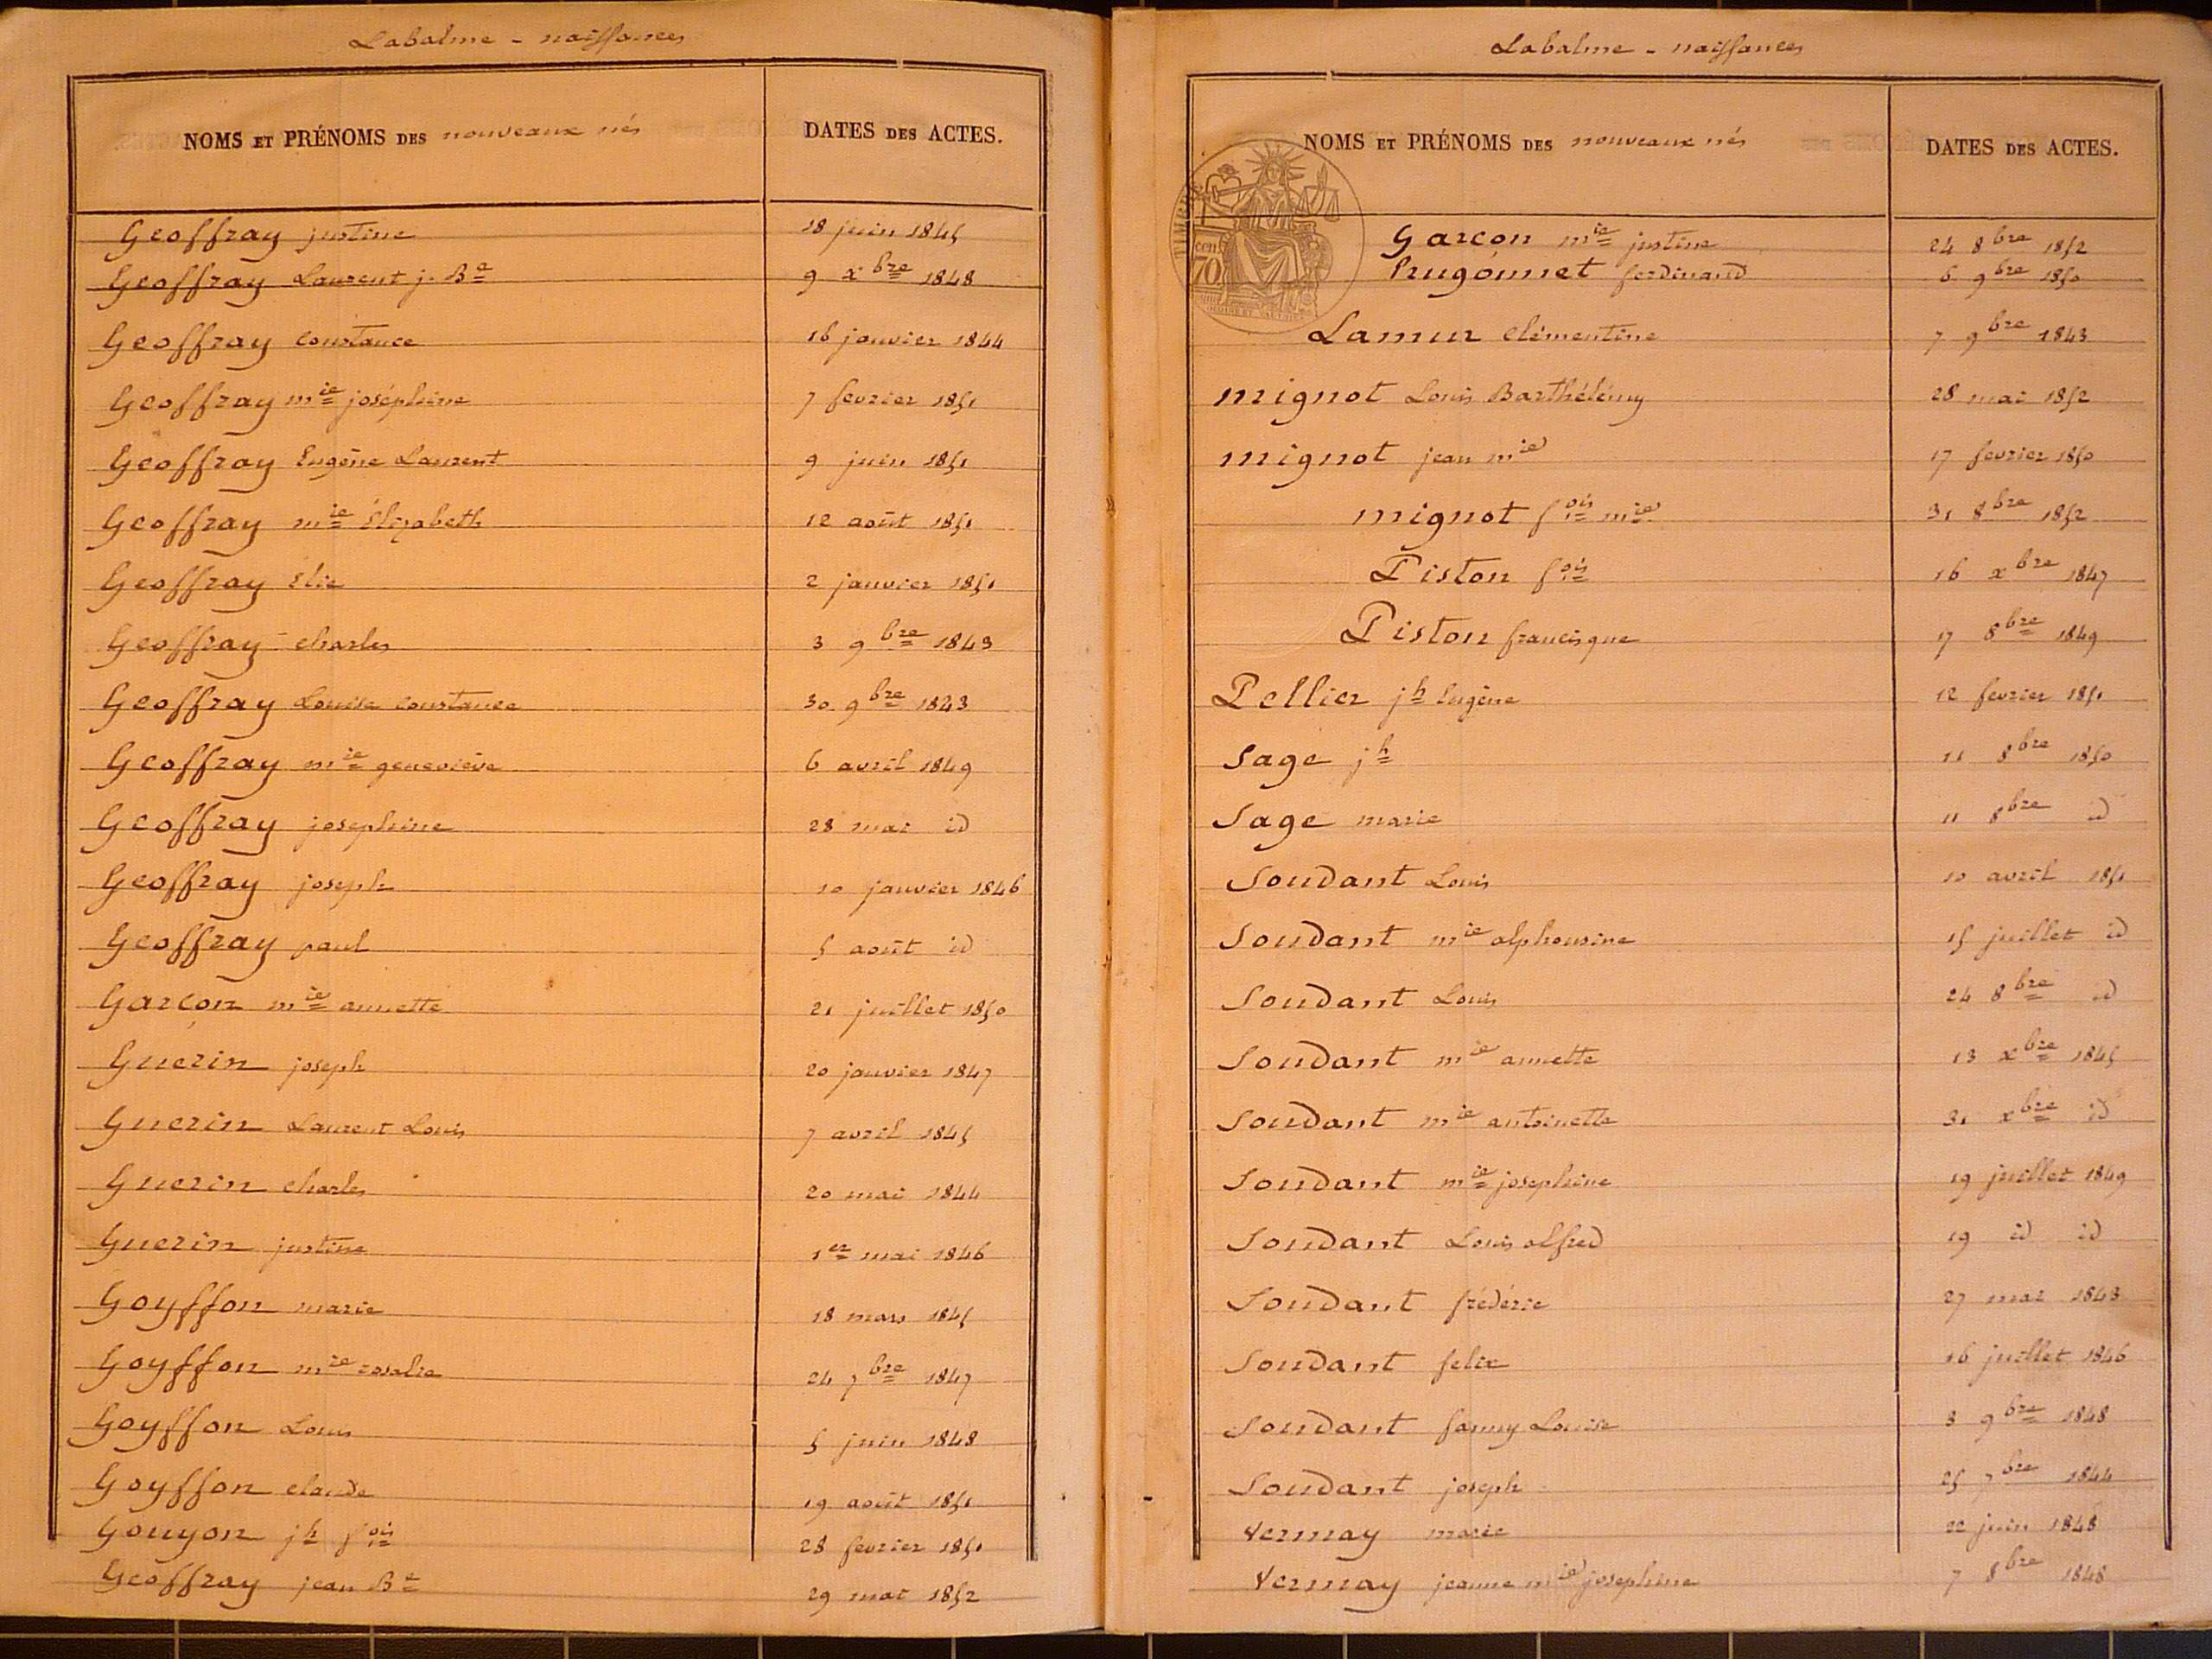 Labalme - naissances
NOMS ET PRÉNOMS DES nouveaux nés DATES DES ACTES.
Geoffray justine 18 juin 1845
Geoffray Laurent j. Bte 9 xbre 1848
Geoffray constance 16 janvier 1844
Geoffray mie joséphine 7 fevrier 1851
Geoffray Eugène Laurent 9 juin 1851
Geoffray mie Élizabeth 12 août 1851
Geoffray Elie 2 janvier 1851
Geoffray charles 3 9bre 1843
Geoffray Louise constance 30 9bre 1843
Geoffray mie geneviève 6 avril 1849
Geoffray josephine 28 mai id
Geoffray joseph 10 janvier 1846
Geoffray paul 5 août id
Garçon mie annette 21 juillet 1850
Guerin joseph 20 janvier 1847
Guerin Laurent Louis 7 avril 1845
Guerin charles 20 mai 1844
Guerin justine 1er mai 1846
Goyffon marie 18 mars 1845
Goyffon mie rosalie 24 7bre 1847
Goyffon Louis 5 juin 1848
Goyffon claude 19 août 1851
Gouyon jh fois 28 fevrier 1851
Geoffray jean Bte 29 mai 1852
Labalme - naissances
NOMS ET PRÉNOMS DES nouveaux nés DATES DES ACTES.
TIMBRE
cen
70
Garçon mie justine 24 8bre 1852
Prugonnet ferdinand 6 9bre 1850
Lamur Clémentine 7 9bre 1843
mignot Louis Barthélémy 28 mai 1852
mignot jean mie 17 fevrier 1850
mignot fois mie 31 8bre 1852
Piston fois 16 xbre 1847
Piston francisque 17 8bre 1849
Pellier jh Eugène 12 fevrier 1851
Sage jh 11 8bre 1850
Sage marie 11 8bre id
Soudant Louis 10 avril 1851
Soudant mie alphonsine 15 juillet id
Soudant Louis 24 8bre id
Soudant mie annette 13 xbre 1845
Soudant mie antoinette 31 xbre id
Soudant mie josephine 19 juillet 1849
Soudant Louis alfred 19 id id
Soudant frédéric 27 mai 1843
Soudant felix 16 juillet 1846
Soudant fanny Louise 3 9bre 1848
Soudant joseph 25 7bre 1844
Vermay marie 22 juin 1848
Vermay jeanne mie josephine 7 8bre 1848